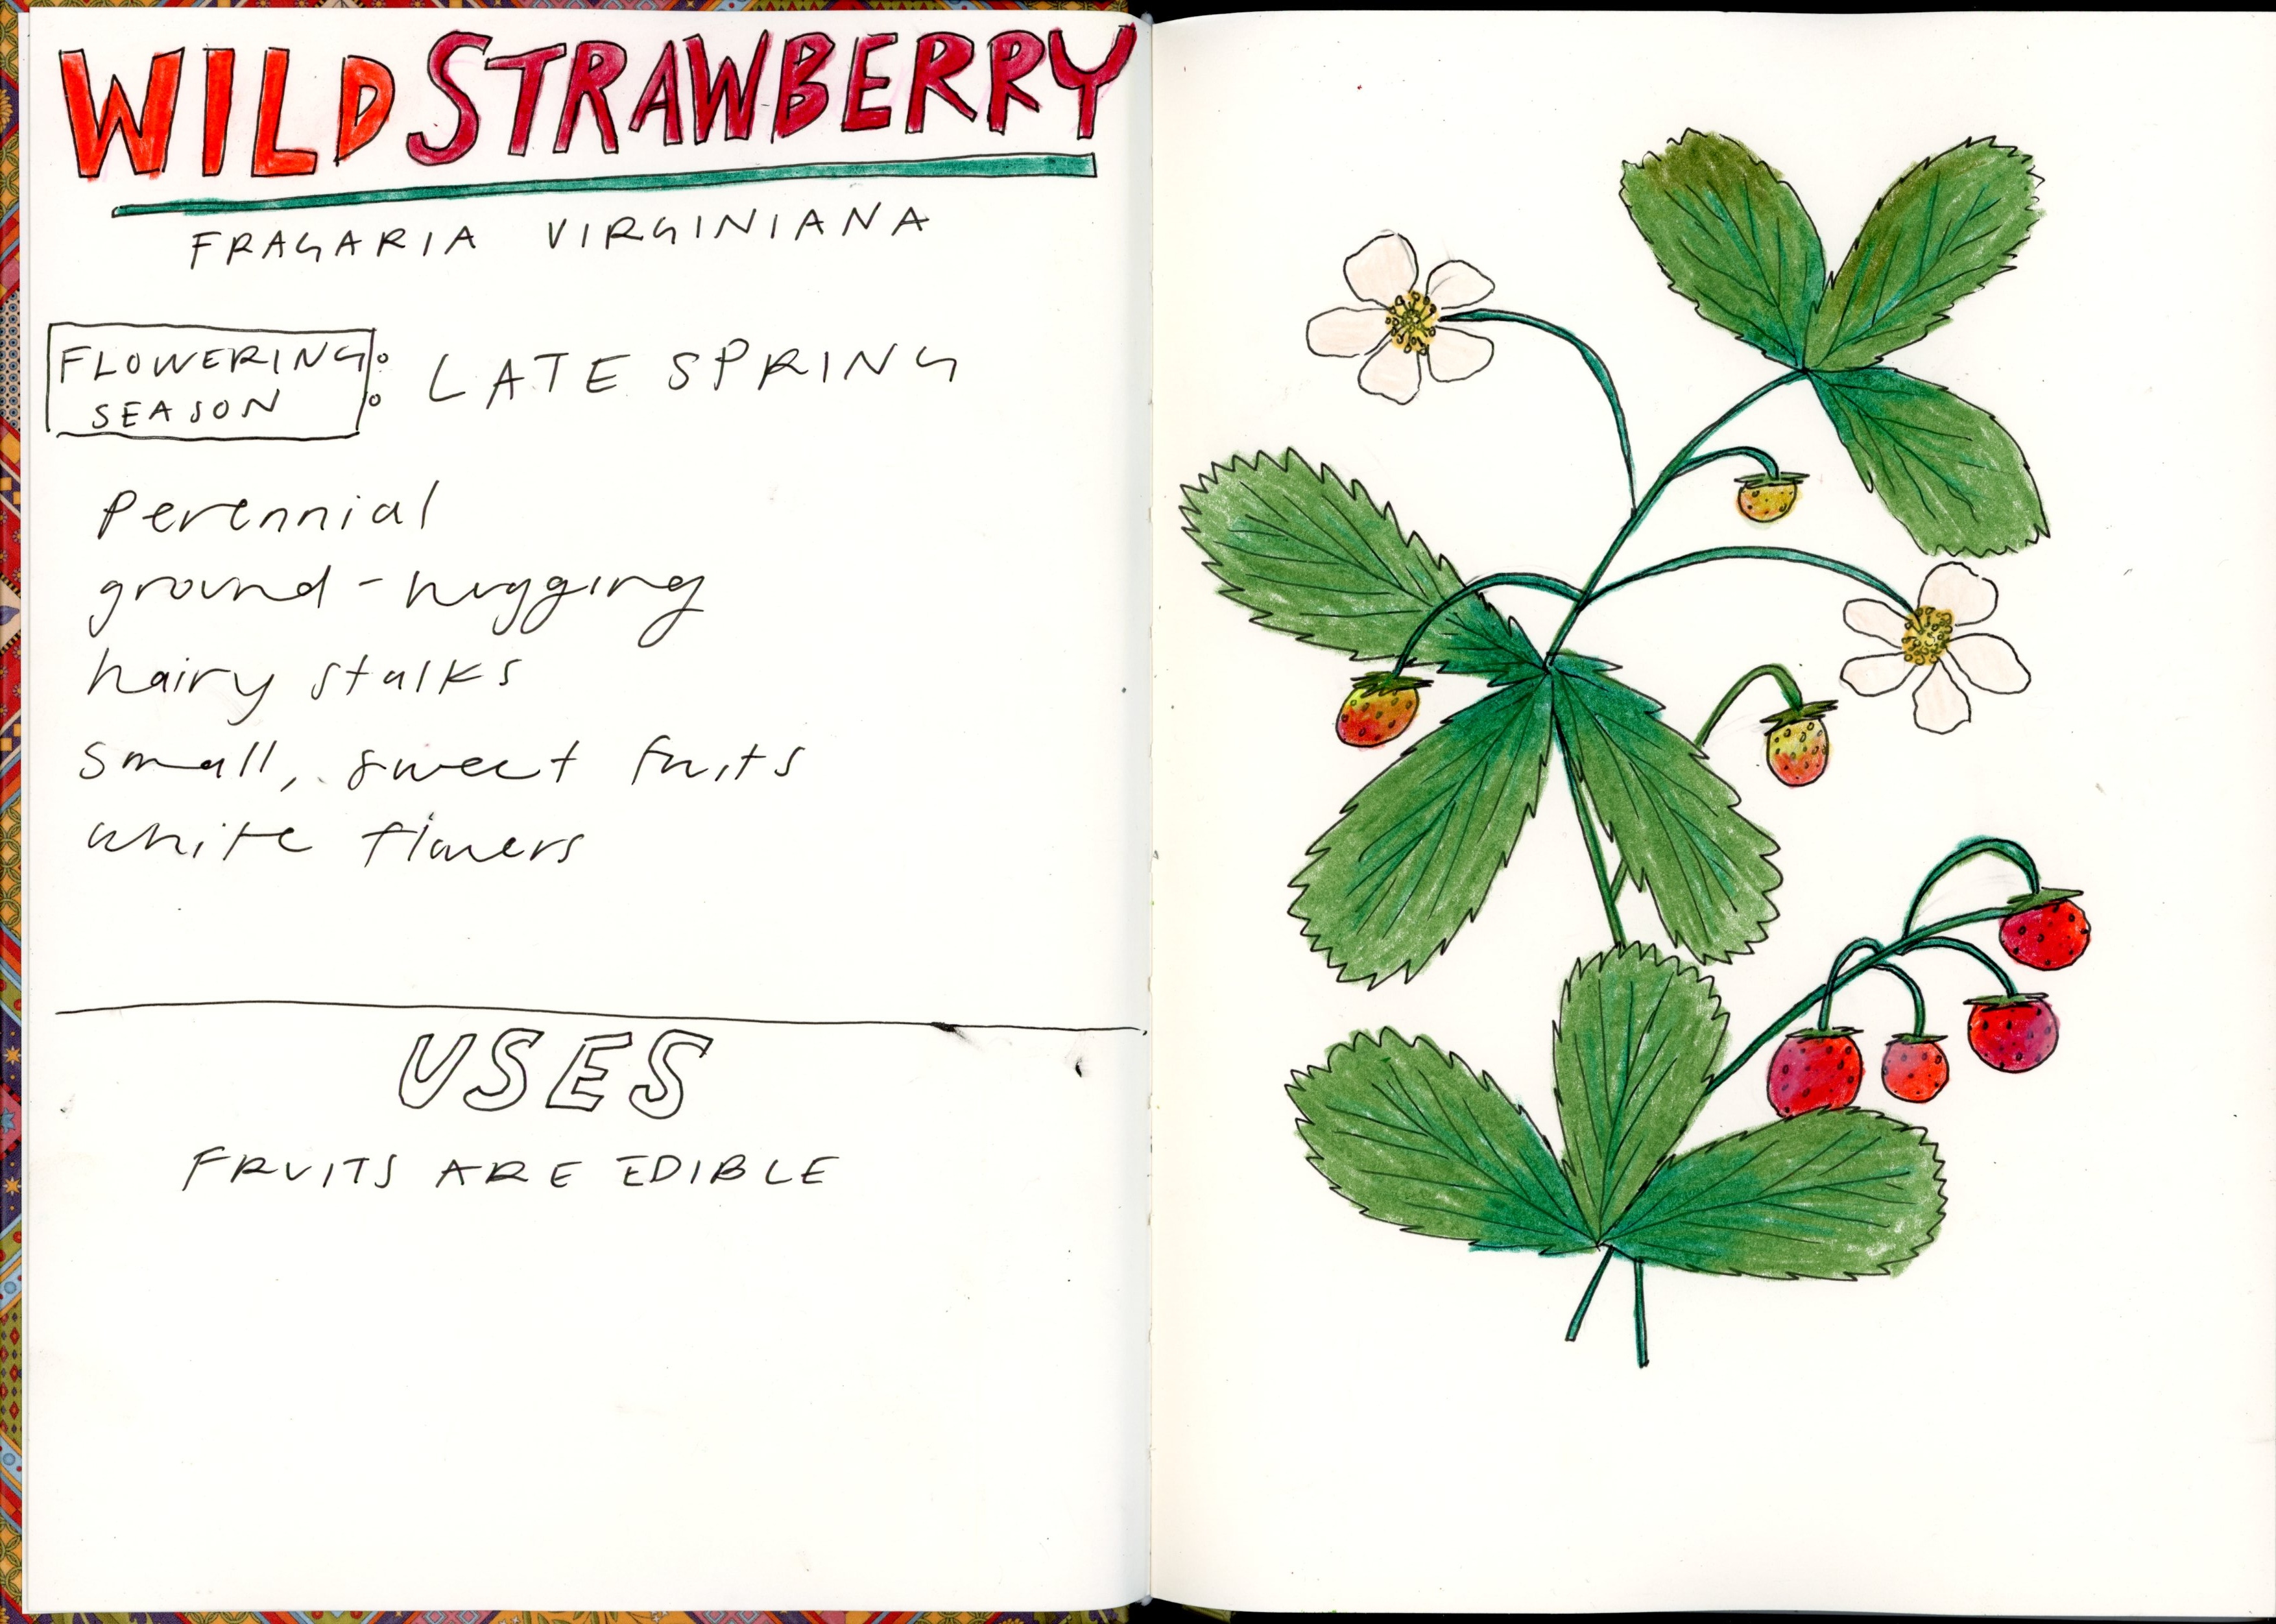 WILD STRAWBERRY
FRAGARIA VIRGINIANA
FLOWERING
SEASON : LATE SPRING
perennial
ground-hugging
hairy stalks
small, sweet fruits
white flowers
USES
FRUITS ARE EDIBLE